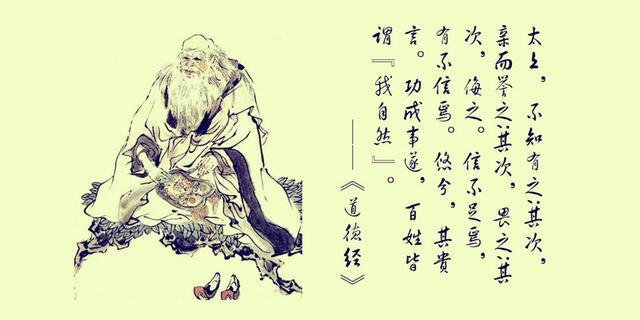 太上，不知有之；其次，
亲而誉之；其次，畏之；其
次，侮之。信不足焉，
有不信焉。悠兮，其貴
言。功成事遂，百姓皆
謂『我自然』。
——《道德经》